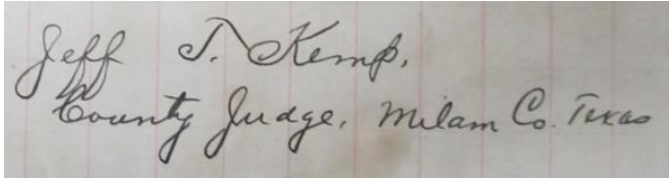 Jeff T. Kemp,
County Judge, Milam Co. Texas